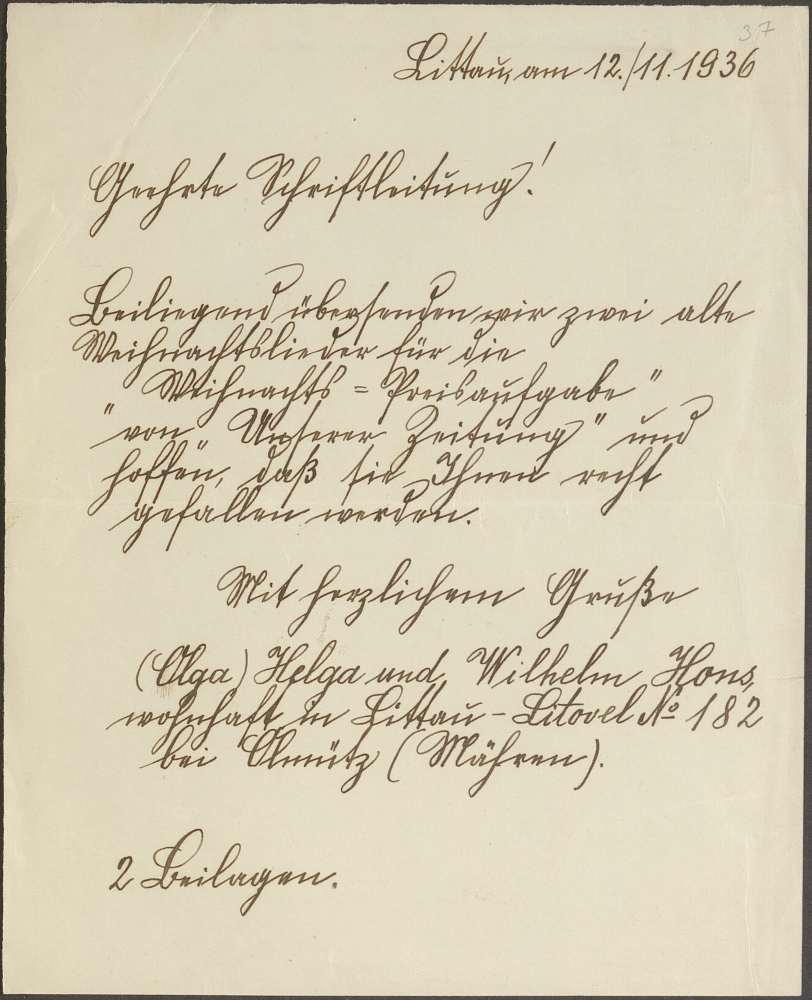 37
Littau, am 12./11.1936
Geehrte Schriftleitung!
Beiliegend übersenden wir zwei alte
Weihnachtslieder für die
"Weihnachts = Preisaufgabe"
"von" Unserer Zeitung" und
hoffen, daß sie Ihnen recht
gefallen werden.
Mit herzlichem Gruße
(Olga) Helga und Wilhelm Hons,
wohnhaft in Littau - Litovel No 182
bei Olmütz (Mähren).
2 Beilagen.